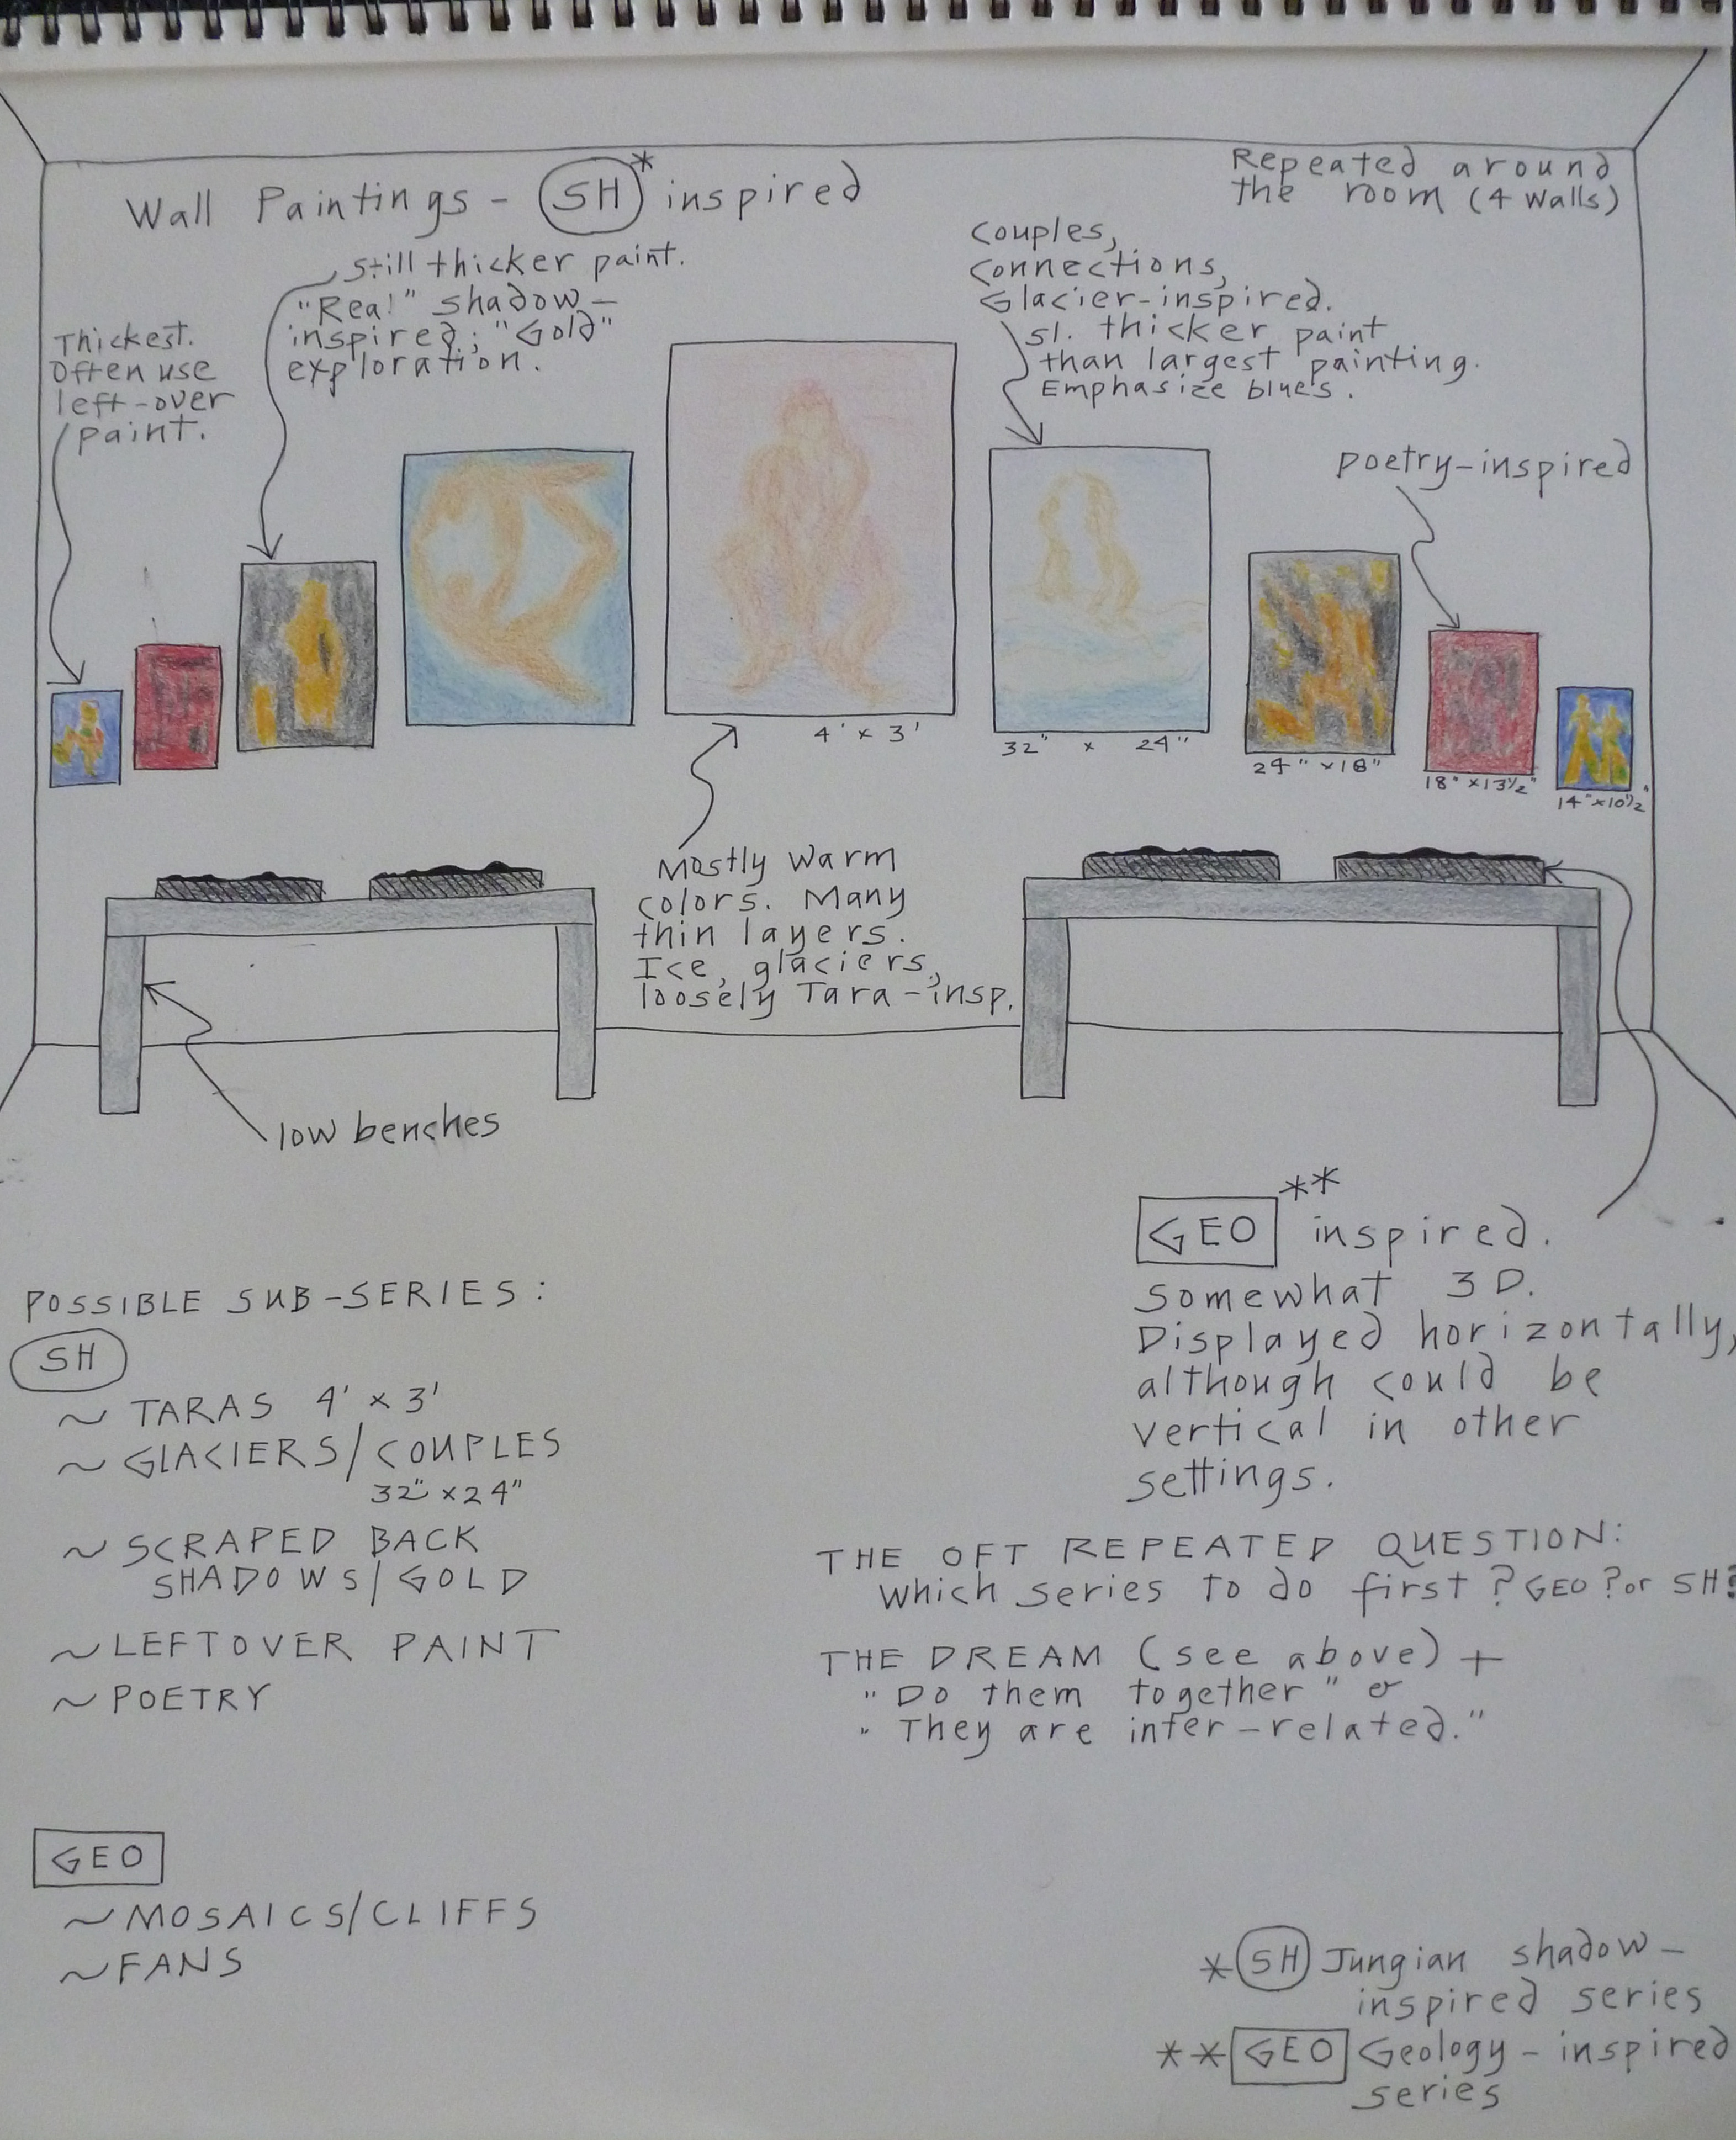 Wall Paintings - SH* inspired
Repeated around
the room (4 walls)
still thicker paint.
"Real" shadow-
inspired; "Gold"
exploration.
Thickest.
Often use
left-over
paint.
Couples,
Connections,
Glacier-inspired.
sl. thicker paint
than largest painting.
Emphasize blues.
poetry-inspired
4' x 3'
32" x 24"
24" x 18"
18" x 13½"
14" x 10½"
Mostly warm
colors. Many
thin layers.
Ice, glaciers,
loosely Tara-insp.
low benches
GEO** inspired.
Somewhat 3D.
Displayed horizontally,
although could be
vertical in other
settings.
POSSIBLE SUB-SERIES:
SH
~ TARAS 4' x 3'
~ GLACIERS/COUPLES
32" x 24"
~ SCRAPED BACK
SHADOWS/GOLD
~ LEFTOVER PAINT
~ POETRY
THE OFT REPEATED QUESTION:
Which series to do first? GEO? or SH?
THE DREAM (see above) +
"Do them together" &
"They are inter-related."
GEO
~ MOSAICS/CLIFFS
~ FANS
* SH Jungian shadow-
inspired series
** GEO Geology-inspired
series